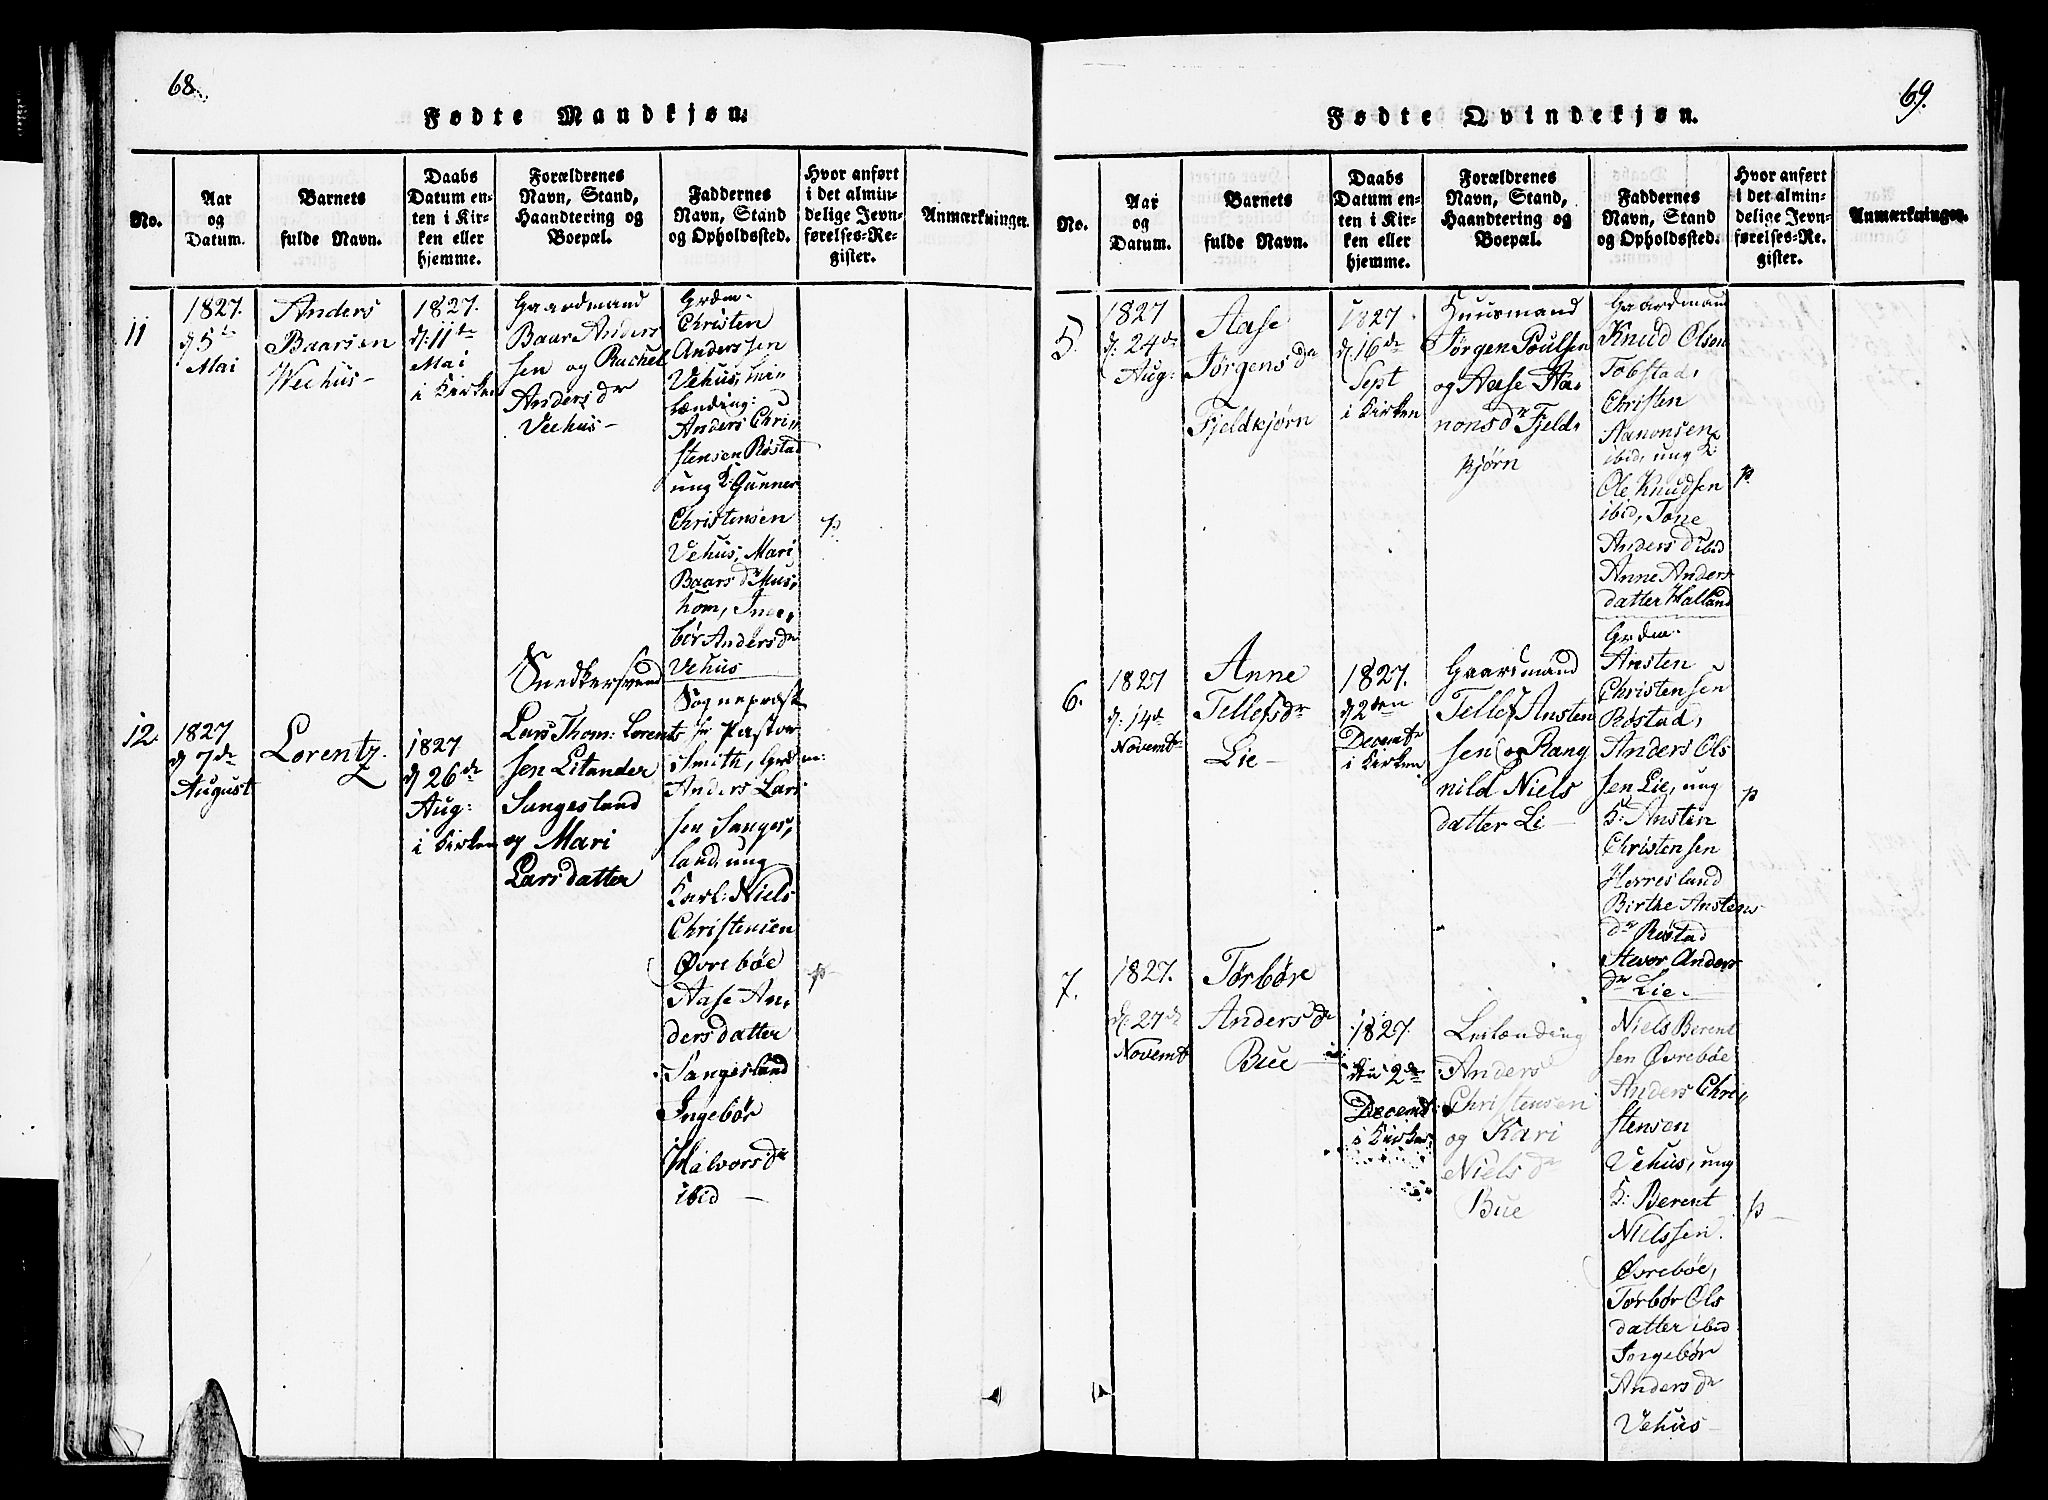 68.
Fødte Mandkjøn.
No.
Aar
og
Datum.
Barnets
fulde Navn.
Daabs
Datum en-
ten i Kir-
ken eller
hjemme.
Forældrenes
Navn, Stand,
Haandtering og
Boepæl.
Faddernes
Navn, Stand
og Opholdssted.
Hvor anført
i det almin-
delige Jevn-
førelses-Re-
gister.
Anmærkninger.
11
1827.
d 5te
Mai
Anders
Baarsen
Weehus-
1827.
d: 11te
Mai
i Kirken
Gaardmand
Baar Anders
sen og Rachel
Anders dr
Veehus-
Grdm.
Christen
Anderssen
Vehus,
lænding:
Anders Chri„
stensen Røstad
ung K: Gunner
Christensen
Vehus, Mari
Baars dr Mus„
hom, Inge„
bør Anders dr
Vehus
p.
12.
1827
d 7de
August
Lorentz.
1827
d 26de
Aug:
i Kirken
Snedkersvend
Lars Thom: Lorents
sen Litander
Sangesland
og Mari
Larsdatter
Sognepræst
hr Pastor
Smith, Grdm:
Anders Lar
sen Sanges„
land, ung
Karl: Niels
Christensen
Øvrebøe
Aase An„
dersdatter
Sangesland
Ingebør
Halvors dr
ibid -
p-
69.
Fødte Qvindekjøn.
No.
Aar
og
Datum.
Barnets
fulde Navn.
Daabs
Datum en-
ten i Kir-
ken eller
hjemme.
Forældrenes
Navn, Stand,
Haandtering og
Boepæl.
Faddernes
Navn, Stand
og Opholdssted.
Hvor anført
i det almin-
delige Jevn-
førelses-Re-
gister.
Anmærkninger.
5.
1827
d. 24de
Aug:
Aase
Jørgens dr
Fjeldkjørn
1827.
d. 16de
Sept
i Kirken
Huusmand
Jørgen Poulsen
og Aase Aa„
nonsdr Fjeld„
kjørn
Gaardmand
Knud Olsen
Tobstad,
Christen
Aanonsen
ibid, ung K:
Ole Knudsen
ibid, Tone
Anders dr ibid
Anne Anders
datter Halland
p.
6.
1827
d: 14de
Novembr
Anne
Tellefsdr
Lie -
1827.
d 2den
Decembr
i Kirken
Gaardmand
Tellef Ansten
sen og Rang
nild Niels
datter Li -
Grdm.
Ansten
Christensen
Røstad,
Anders Ols
sen Lie, ung
K: Ansten
Christensen
Herresland
Birthe Anstens
dr Røstad
Anders
dr Lie.
p
7.
1827.
d. 27de
Novembr
Tørbøre
Anders dr
Bue -
1827.
den 2de
Decembr
i Kirken
Leilænding
Anders
Christensen
og Kari
Niels dr
Bue
Niels Berent
sen Øvrebøe
Anders Chri„
stensen
Vehus, ung
K: Berent
Nielssen.
Øvrebøe,
Tørbør Ols
datter ibid
Ingebør
Anders dr
Vehus -
p -